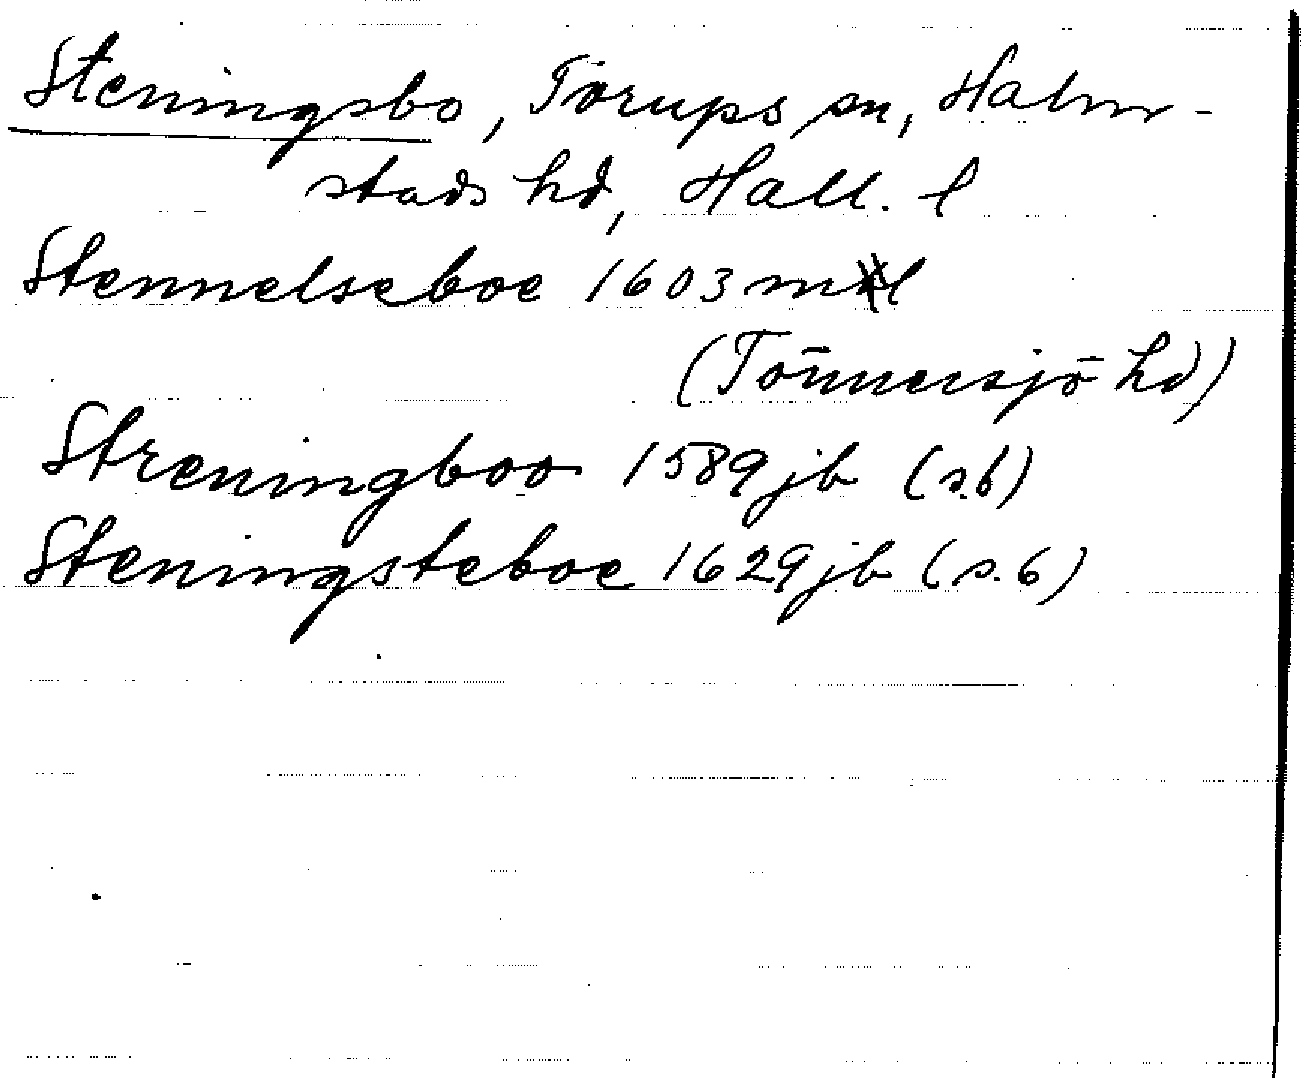 Steningsbo, Torups sn, Halm-
stads hd, Hall. l
Stennelseboe 1603 ml
(Tönnersjö hd)
Streningboo 1589 jb (s.6)
Steningsteboe 1629 jb (s.6)